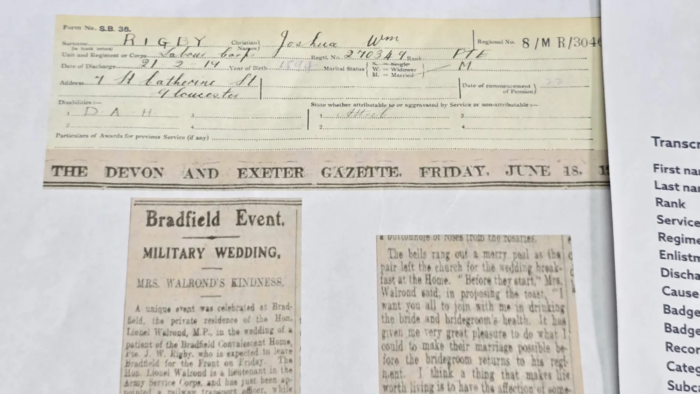 Form No. S.B. 36.
Surname RIGBY Christian Name Joshua Wm Regional No. 8/MR/3040
(in block letters)
Unit and Regiment or Corps Labour Corps Regtl. No. 270349 Rank Pte
Date of Discharge 21-2-19 Year of Birth 1894 Marital Status S. = Single W. = Widower M. = Married M
Address 7 St Catherine St
Gloucester
Date of commencement of Pension
Disabilities:— State whether attributable to or aggravated by Service or non-attributable:—
1. D A H 3. 1. Attrib 3.
2. 4. 2. 4.
Particulars of Awards for previous Service (if any)
THE DEVON AND EXETER GAZETTE, FRIDAY, JUNE 18, 1
Bradfield Event.
MILITARY WEDDING.
MRS. WALROND'S KINDNESS.
A unique event was celebrated at Brad-
field, the private residence of the Hon.
Lionel Walrond, M.P., in the wedding of a
patient of the Bradfield Convalescent Home,
Pte. J. W. Rigby, who is expected to leave
Bradfield for the Front on Friday. The
Hon. Lionel Walrond is a lieutenant in the
Army Service Corps, and has just been ap-
pointed a railway transport officer, while
a buttonhole of roses from the rosaries.
The bells rang out a merry peal as the
pair left the church for the wedding break-
fast at the Home. "Before they start," Mrs.
Walrond said, in proposing the toast, "I
want you all to join with me in drinking
the bride and bridegroom's health. It has
given me very great pleasure to do what I
could to make their marriage possible be-
fore the bridegroom returns to his regi-
ment. I think a thing that makes life
worth living is to have the affection of some-
Transcr
First na
Last na
Rank
Service
Regime
Enlistm
Discha
Cause
Badge
Badge
Recor
Categ
Subca